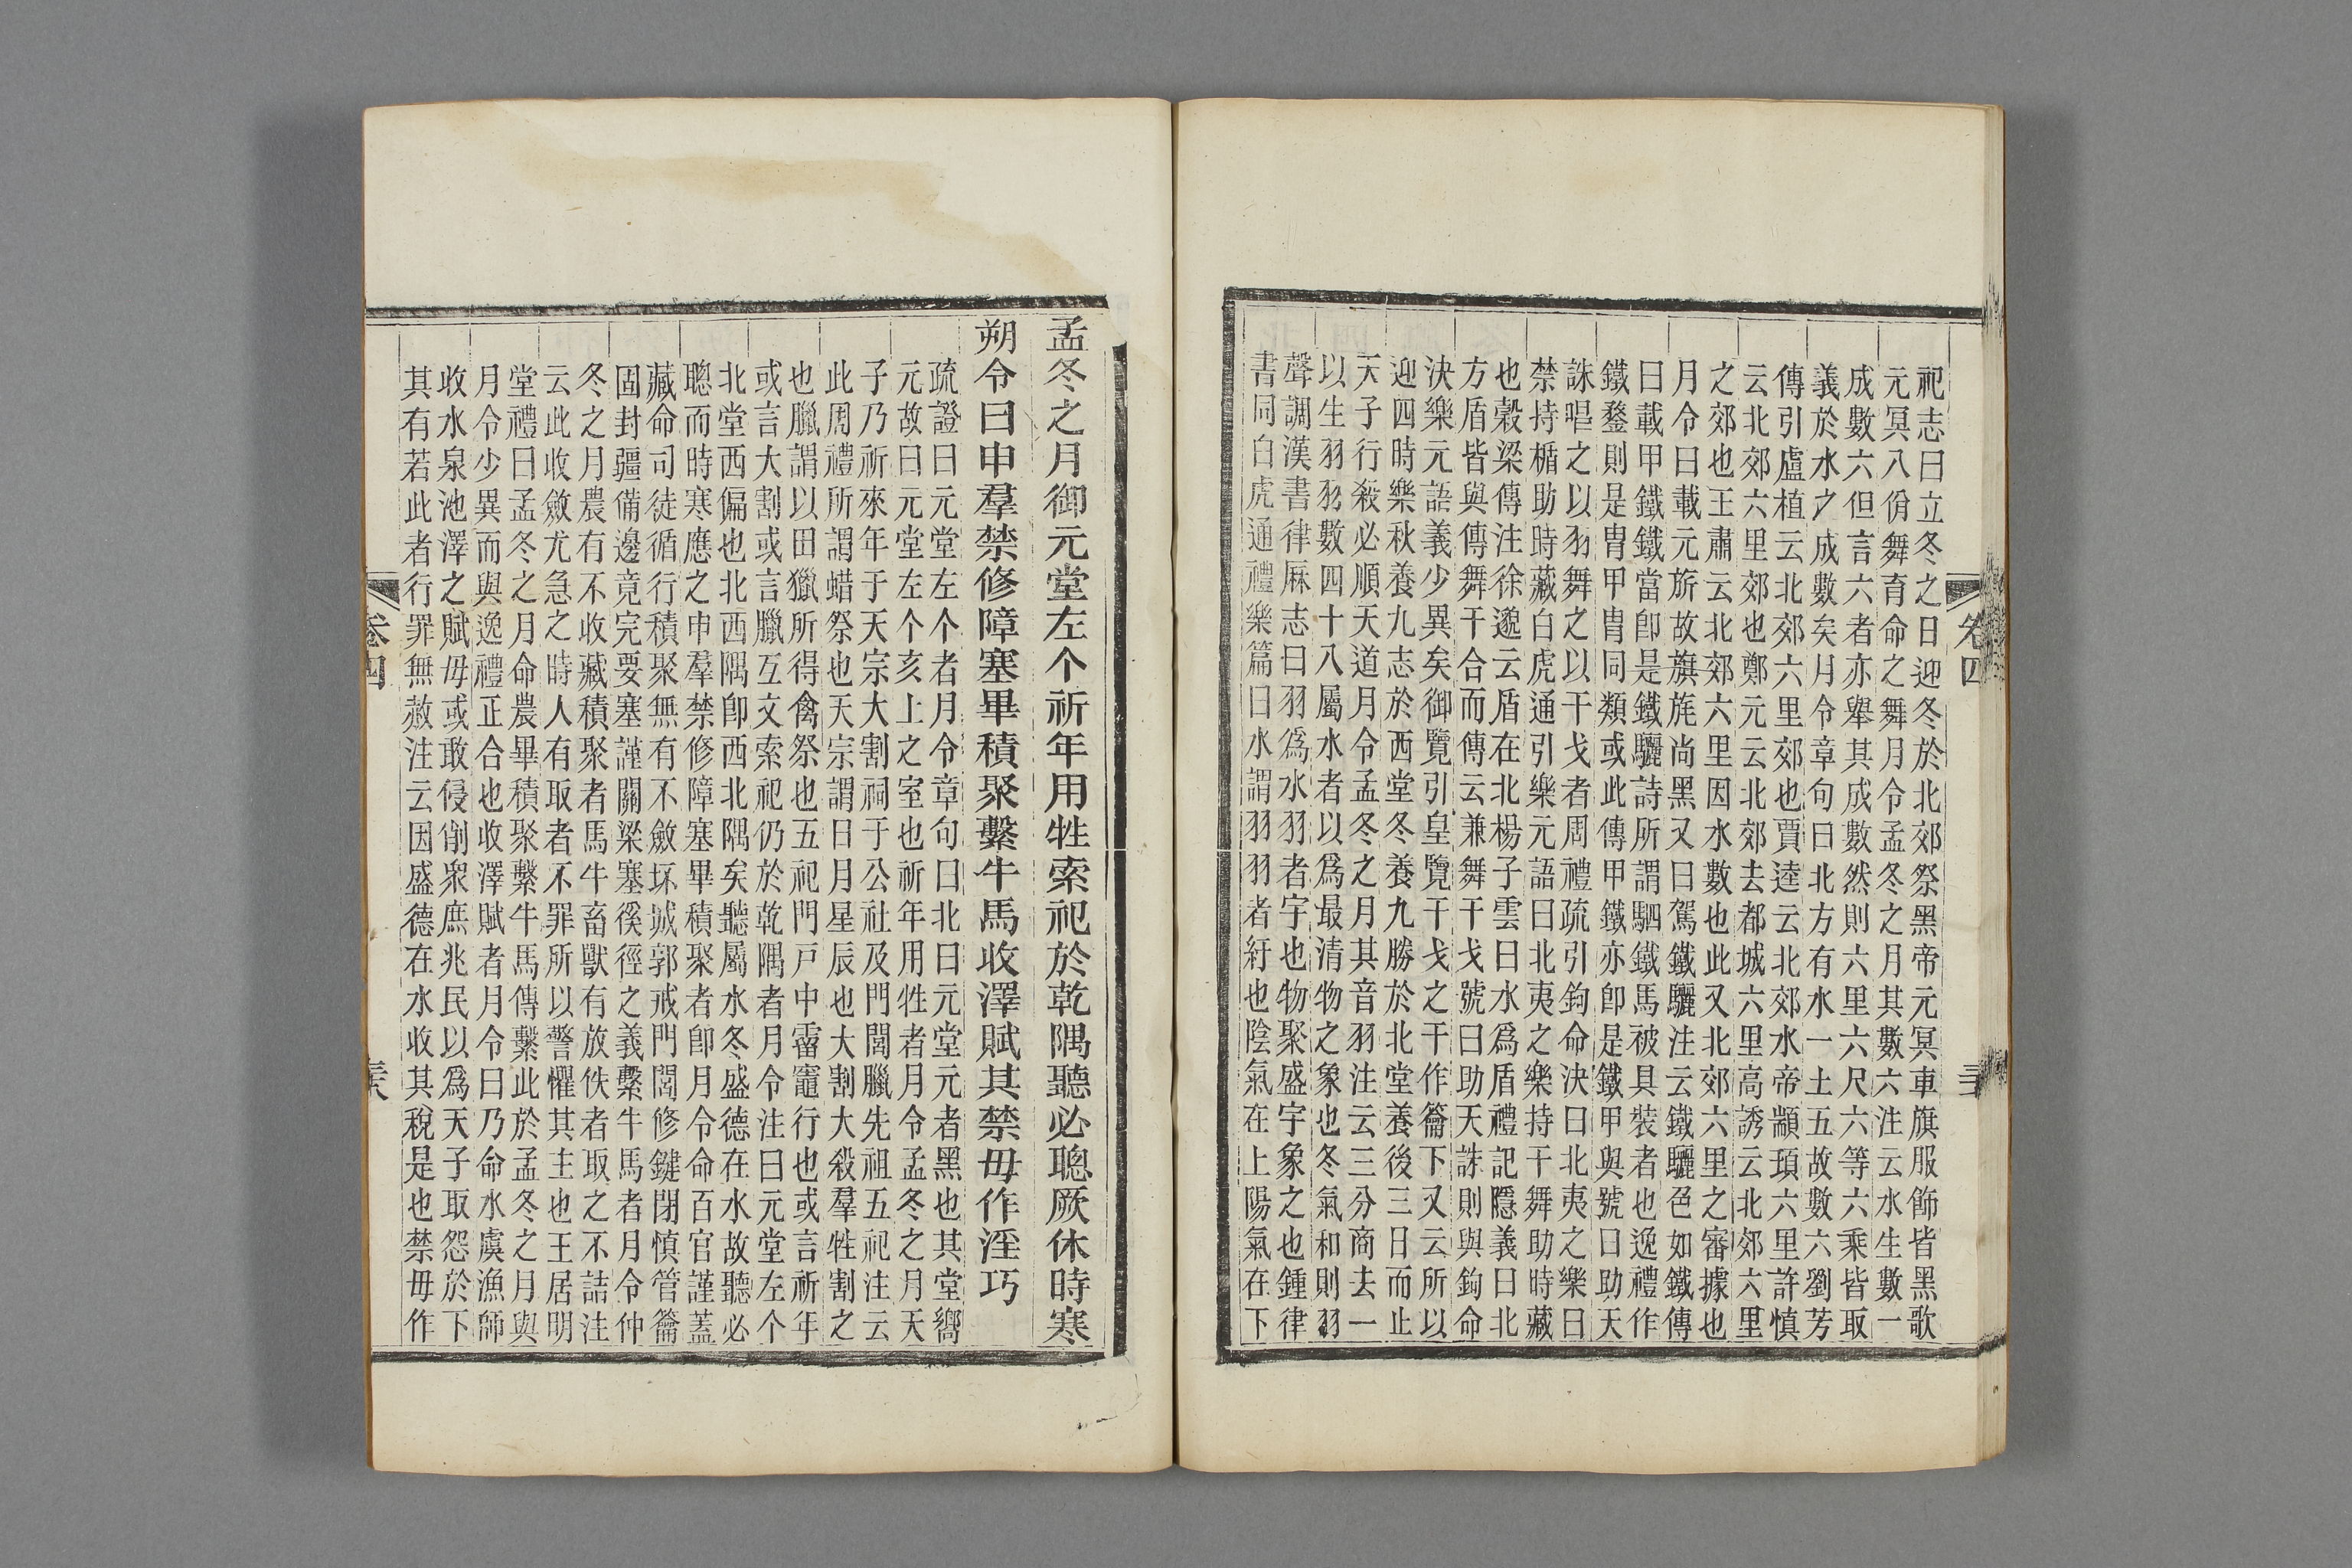 祀志曰立冬之日迎冬於北郊祭黑帝元冥車旗服飾皆黑歌
元冥八佾舞育命之舞月令孟冬之月其數六注云水生數一
成數六但言六者亦舉其成數然則六里六尺六等六乘皆取
義於水之成數矣月令章句曰北方有水一土五故數六劉芳
傳引盧植云北郊六里郊也賈逵云北郊水帝顓頊六里許慎
云北郊六里郊也鄭元云北郊去都城六里高誘云北郊六里
之郊也王肅云北郊六里因水數也此又北郊六里之審據也
月令曰載元旂故旗旄尚黑又曰駕鐵驪注云鐵驪色如鐵傳
曰載甲鐵鐵當卽是鐵驪詩所謂駟鐵馬被具裝者也逸禮作
鐵鍪則是冑甲冑同類或此傳甲鐵亦卽是鐵甲與號曰助天
誅唱之以羽舞之以干戈者周禮疏引鉤命決曰北夷之樂曰
禁持楯助時藏白虎通引樂元語曰北夷之樂持干舞助時藏
也穀梁傳注徐邈云盾在北楊子雲曰水爲盾禮記隱義曰北
方盾皆與傳舞干合而傳云兼舞干戈號曰助天誅則與鉤命
決樂元語義少異矣御覽引皇覽干戈之干作籥下又云所以
迎四時樂秋養九志於西堂冬養九勝於北堂養後三日而止
天子行殺必順天道月令孟冬之月其音羽注云三分商去一
以生羽羽數四十八屬水者以爲最清物之象也冬氣和則羽
聲調漢書律厤志曰羽爲水羽者宇也物聚盛宇象之也鍾律
書同白虎通禮樂篇曰水謂羽羽者紆也陰氣在上陽氣在下
卷四
孟冬之月御元堂左个祈年用牲索祀於乾隅聽必聰厥休時寒
朔令曰申羣禁修障塞畢積聚繫牛馬收澤賦其禁毋作淫巧
疏證曰元堂左个者月令章句曰北曰元堂元者黑也其堂嚮
元故曰元堂左个亥上之室也祈年用牲者月令孟冬之月天
子乃祈來年于天宗大割祠于公社及門閭臘先祖五祀注云
此周禮所謂蜡祭也天宗謂日月星辰也大割大殺羣牲割之
也臘謂以田獵所得禽祭也五祀門戸中霤竈行也或言祈年
或言大割或言臘互文索祀仍於乾隅者月令注曰元堂左个
北堂西偏也北西隅卽西北隅矣聽屬水冬盛德在水故聽必
聰而時寒應之申羣禁修障塞畢積聚者卽月令命百官謹蓋
藏命司徒循行積聚無有不斂坏城郭戒門閭修鍵閉慎管籥
固封疆備邊竟完要塞謹關梁塞徯徑之義繫牛馬者月令仲
冬之月農有不收藏積聚者馬牛畜獸有放佚者取之不詰注
云此收斂尤急之時人有取者不罪所以警懼其主也王居明
堂禮曰孟冬之月命農畢積聚繫牛馬傳繫此於孟冬之月與
月令少異而與逸禮正合也收澤賦者月令曰乃命水虞漁師
收水泉池澤之賦毋或敢侵削衆庶兆民以爲天子取怨於下
其有若此者行罪無赦注云因盛德在水收其稅是也禁毋作
卷四